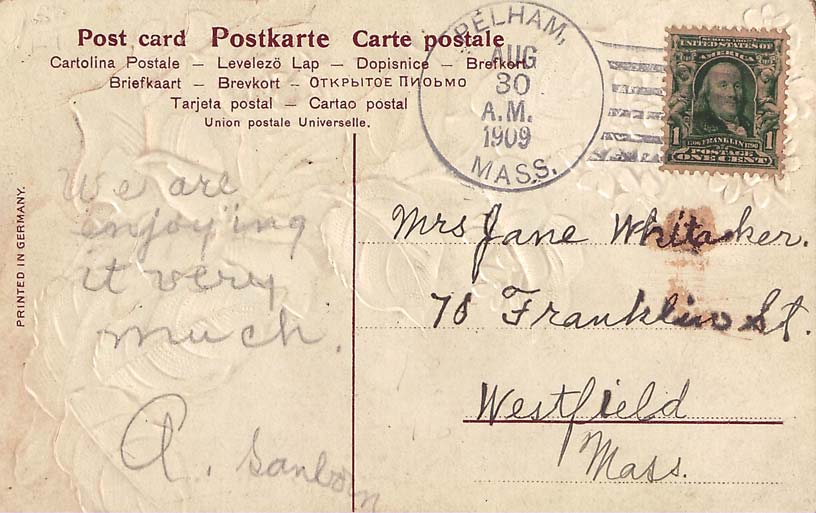 Post card Postkarte Carte postale
Cartolina Postale – Levelező Lap – Dopisnice – Brefkort
Briefkaart – Brevkort – ОТКРЫТОЕ ПИСЬМО
Tarjeta postal – Cartao postal
Union postale Universelle.
PELHAM,
AUG
30
A.M.
1909
MASS.
UNITED STATES OF
AMERICA
1 FRANKLIN 1
POSTAGE
ONE CENT
PRINTED IN GERMANY.
We are
enjoying
it very
much.
A. Sanborn
Mrs Jane Whitaker.
78 Franklin St.
Westfield
Mass.